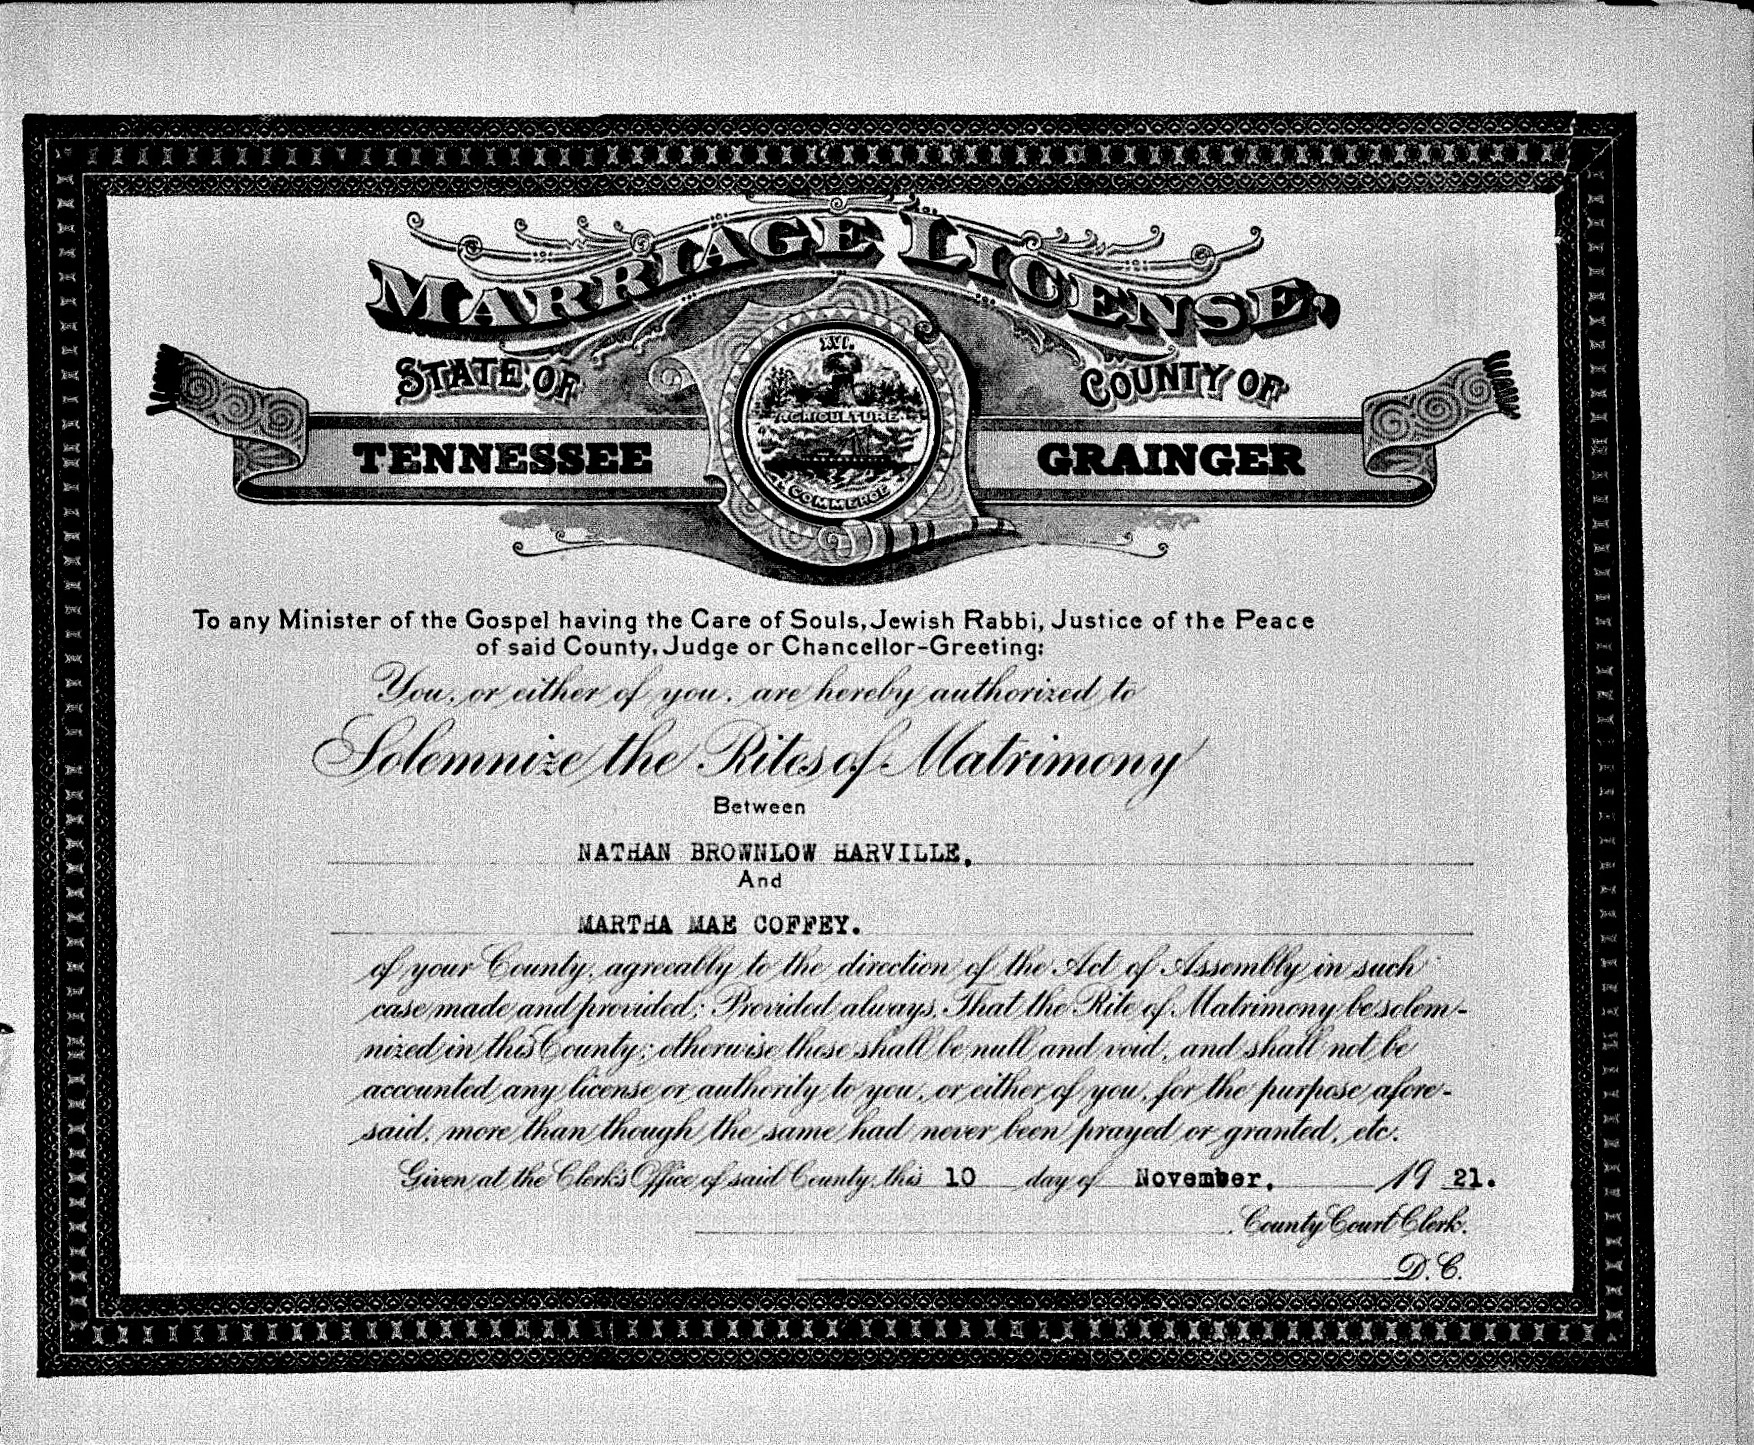 MARRIAGE LICENSE,
STATE OF
COUNTY OF
TENNESSEE
GRAINGER
XVI.
AGRICULTURE
COMMERCE
To any Minister of the Gospel having the Care of Souls, Jewish Rabbi, Justice of the Peace
of said County, Judge or Chancellor-Greeting:
You, or either of you, are hereby authorized to
Solemnize the Rites of Matrimony
Between
NATHAN BROWNLOW HARVILLE,
And
MARTHA MAE COFFEY.
of your County, agreeably to the direction of the Act of Assembly in such
case made and provided; Provided always, That the Rite of Matrimony be solem-
nized in this County; otherwise these shall be null and void, and shall not be
accounted any license or authority to you, or either of you, for the purpose afore-
said, more than though the same had never been prayed or granted, etc.
Given at the Clerk's Office of said County, this 10 day of November, 19 21.
County Court Clerk.
D. C.